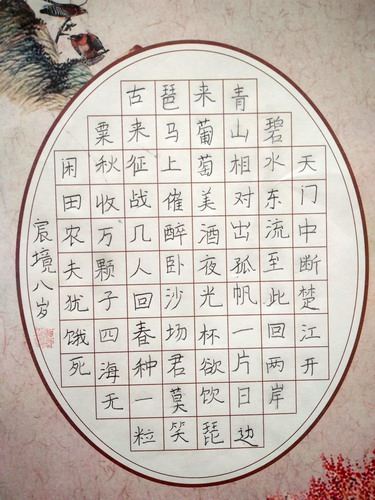 天门中断楚江开
碧水东流至此回两岸
青山相对出孤帆一片日边
来葡萄美酒夜光杯欲饮琵
琶马上催醉卧沙场君莫笑
古来征战几人回春种一粒
粟秋收万颗子四海无
闲田农夫犹饿死
宸境八岁